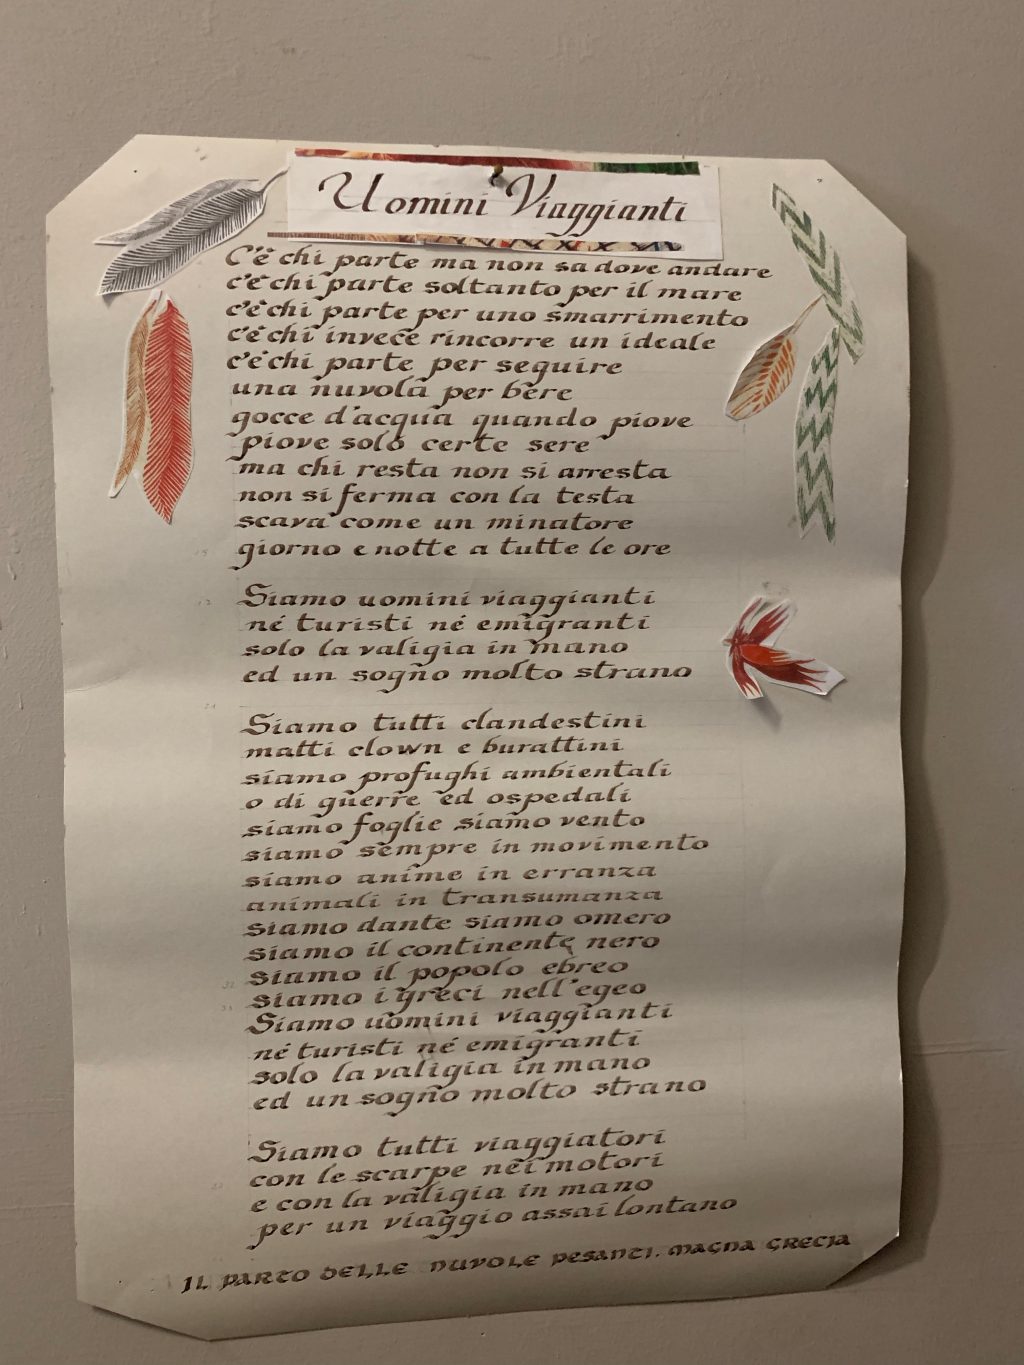 Uomini Viaggianti
C'è chi parte ma non sa dove andare
c'è chi parte soltanto per il mare
c'è chi parte per uno smarrimento
c'è chi invece rincorre un ideale
c'è chi parte per seguire
una nuvola per bere
gocce d'acqua quando piove
piove solo certe sere
ma chi resta non si arresta
non si ferma con la testa
scava come un minatore
giorno e notte a tutte le ore
Siamo uomini viaggianti
né turisti né emigranti
solo la valigia in mano
ed un sogno molto strano
Siamo tutti clandestini
matti clown e burattini
siamo profughi ambientali
o di guerre ed ospedali
siamo foglie siamo vento
siamo sempre in movimento
siamo anime in erranza
animali in transumanza
siamo dante siamo omero
siamo il continente nero
siamo il popolo ebreo
siamo i greci nell'egeo
Siamo uomini viaggianti
né turisti né emigranti
solo la valigia in mano
ed un sogno molto strano
Siamo tutti viaggiatori
con le scarpe nei motori
e con la valigia in mano
per un viaggio assai lontano
IL PARTO DELLE NUVOLE PESANTI. MAGNA GRECIA